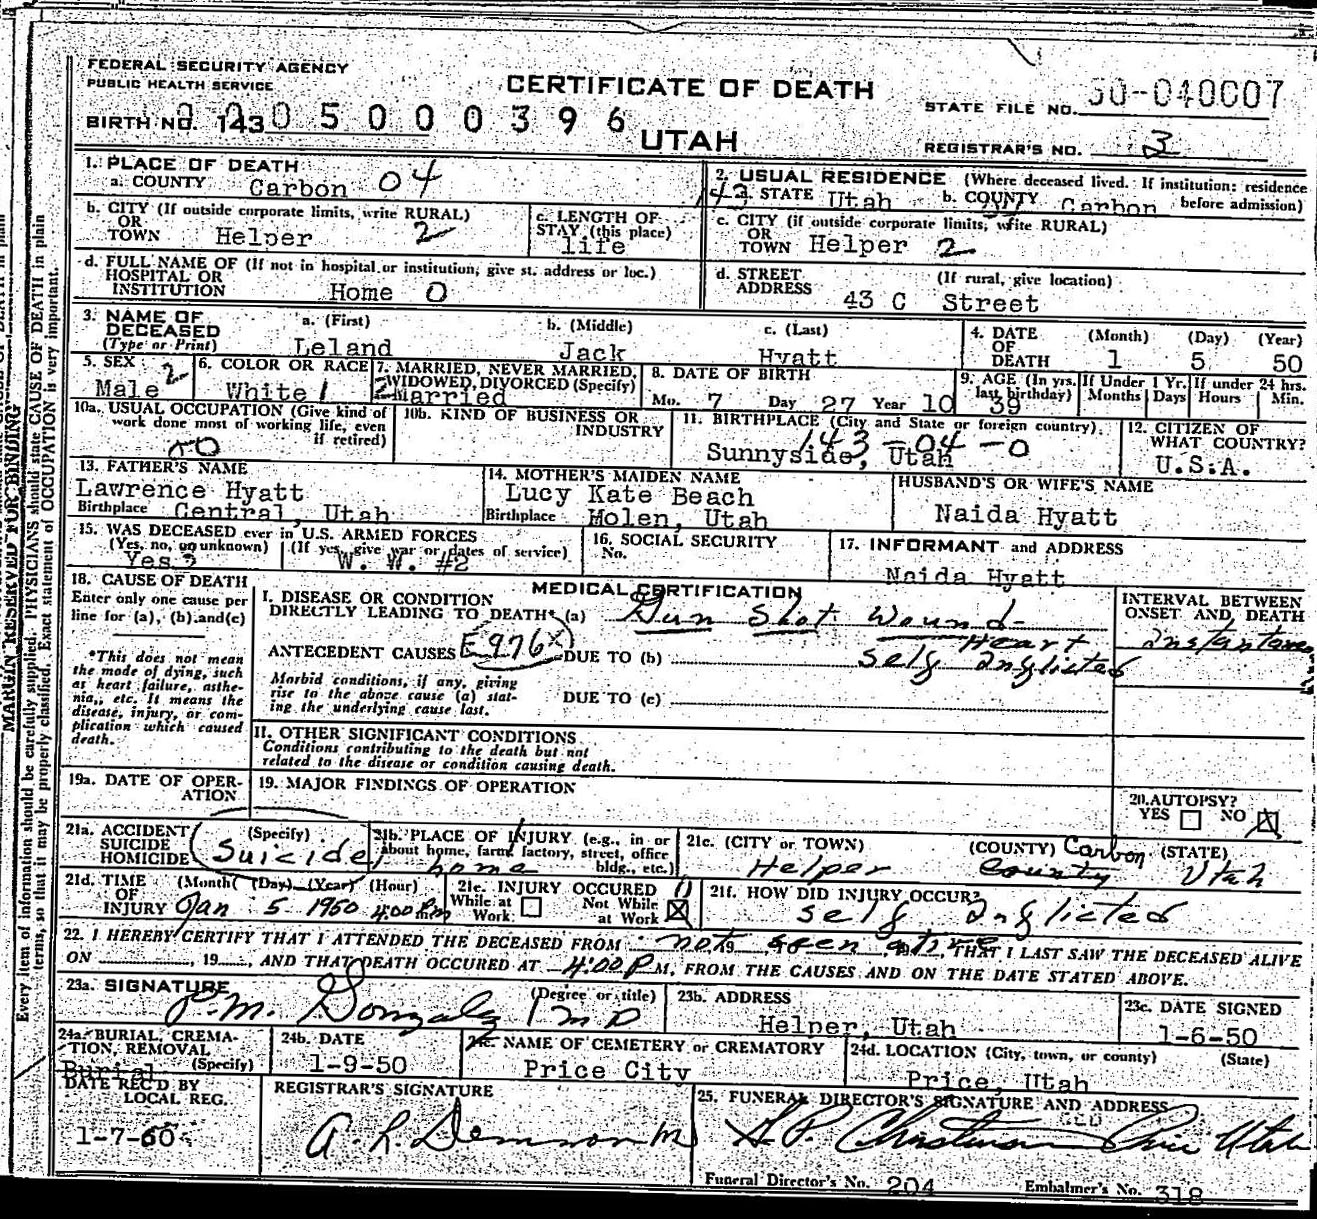 FEDERAL SECURITY AGENCY
PUBLIC HEALTH SERVICE
CERTIFICATE OF DEATH
STATE FILE NO. 50-040007
BIRTH NO. 143 0 0 5 0 0 0 3 9 6
UTAH
REGISTRAR'S NO. 3
1. PLACE OF DEATH
a. COUNTY Carbon 04
2. USUAL RESIDENCE (Where deceased lived. If institution: residence before admission)
143 a. STATE Utah b. COUNTY Carbon
b. CITY (If outside corporate limits, write RURAL)
OR TOWN Helper 2
c. LENGTH OF STAY (this place) life
c. CITY (if outside corporate limits, write RURAL)
OR TOWN Helper 2
d. FULL NAME OF (If not in hospital or institution, give st. address or loc.)
HOSPITAL OR INSTITUTION Home 0
d. STREET ADDRESS (If rural, give location)
43 C Street
3. NAME OF DECEASED (Type or Print)
a. (First) Leland
b. (Middle) Jack
c. (Last) Hyatt
4. DATE OF DEATH (Month) 1 (Day) 5 (Year) 50
5. SEX 2 Male
6. COLOR OR RACE White 1
7. MARRIED, NEVER MARRIED, WIDOWED, DIVORCED (Specify) 2 Married
8. DATE OF BIRTH Mo. 7 Day 27 Year 10
9. AGE (In yrs. last birthday) 39
If Under 1 Yr. Months Days
If under 24 hrs. Hours Min.
10a. USUAL OCCUPATION (Give kind of work done most of working life, even if retired)
10b. KIND OF BUSINESS OR INDUSTRY
11. BIRTHPLACE (City and State or foreign country)
143-04-0
Sunnyside, Utah
12. CITIZEN OF WHAT COUNTRY?
U.S.A.
13. FATHER'S NAME
Lawrence Hyatt
Birthplace Central, Utah
14. MOTHER'S MAIDEN NAME
Lucy Kate Beach
Birthplace Molen, Utah
HUSBAND'S OR WIFE'S NAME
Naida Hyatt
15. WAS DECEASED ever in U.S. ARMED FORCES
(Yes, no, or unknown) Yes
(If yes, give war or dates of service) W. W. #2
16. SOCIAL SECURITY No.
17. INFORMANT and ADDRESS
Naida Hyatt
18. CAUSE OF DEATH
Enter only one cause per line for (a), (b) and (c)
*This does not mean the mode of dying, such as heart failure, asthenia, etc. It means the disease, injury, or complication which caused death.
MEDICAL CERTIFICATION
I. DISEASE OR CONDITION DIRECTLY LEADING TO DEATH* (a) Gun Shot Wound- Heart
ANTECEDENT CAUSES E976X DUE TO (b) self Inflicted
Morbid conditions, if any, giving rise to the above cause (a) stating the underlying cause last.
DUE TO (c)
INTERVAL BETWEEN ONSET AND DEATH
II. OTHER SIGNIFICANT CONDITIONS
Conditions contributing to the death but not related to the disease or condition causing death.
19a. DATE OF OPERATION
19. MAJOR FINDINGS OF OPERATION
20. AUTOPSY?
YES NO X
21a. ACCIDENT SUICIDE HOMICIDE (Specify) Suicide
21b. PLACE OF INJURY (e.g., in or about home, farm, factory, street, office bldg., etc.) home
21c. (CITY or TOWN) Helper
(COUNTY) Carbon County
(STATE) Utah
21d. TIME OF INJURY (Month) (Day) (Year) (Hour)
Jan 5 1950 4:00 Pm
21e. INJURY OCCURED
While at Work Not While at Work X
21f. HOW DID INJURY OCCUR?
self Inflicted
22. I HEREBY CERTIFY THAT I ATTENDED THE DECEASED FROM not seen alive, THAT I LAST SAW THE DECEASED ALIVE
ON , 19 , AND THAT DEATH OCCURED AT 4:00 P M, FROM THE CAUSES AND ON THE DATE STATED ABOVE.
23a. SIGNATURE (Degree or title)
P.M. Gonzalez MD
23b. ADDRESS
Helper, Utah
23c. DATE SIGNED
1-6-50
24a. BURIAL, CREMATION, REMOVAL (Specify)
Burial
24b. DATE
1-9-50
24c. NAME OF CEMETERY or CREMATORY
Price City
24d. LOCATION (City, town, or county) (State)
Price, Utah
DATE REC'D BY LOCAL REG.
1-7-60
REGISTRAR'S SIGNATURE
25. FUNERAL DIRECTOR'S SIGNATURE AND ADDRESS
Price Utah
Funeral Director's No. 204
Embalmer's No. 318
MARGIN RESERVED FOR BINDING
Every item of information should be carefully supplied. PHYSICIANS should state CAUSE OF DEATH in plain
terms, so that it may be properly classified. Exact statement of OCCUPATION is very important.